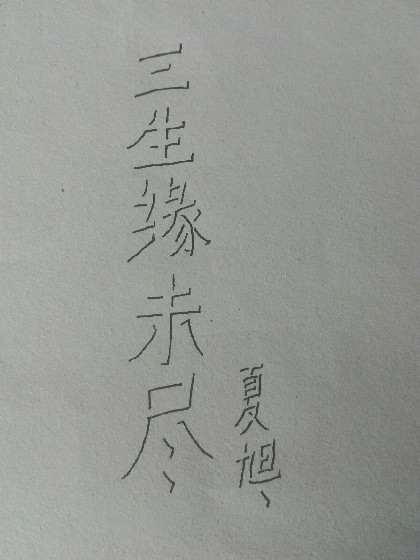 三生缘未尽
夏旭